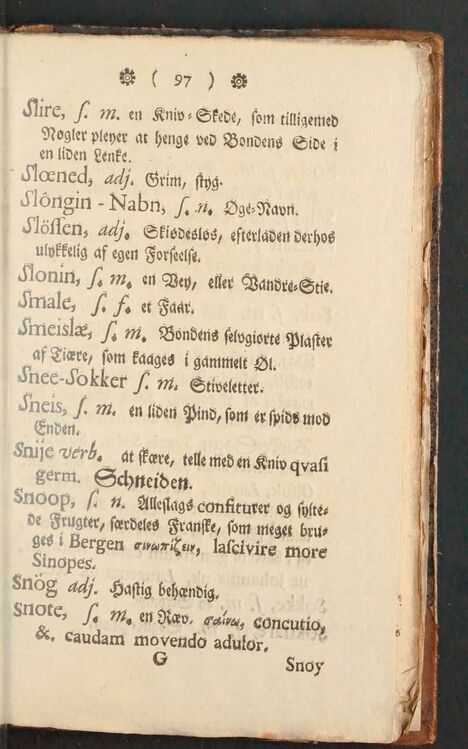 ( 97 )
Slire, s. m. en Kniv-Skede, som tilligemed
Nøgler pleyer at henge ved Bondens Side i
en liden Lenke.
Slœned, adj. Grim, styg.
Slôngin-Nabn, s. n. Øge-Navn.
Slössen, adj. Skiødesløs, efterladen derhos
ulykkelig af egen Forseelse.
Slonin, s. m. en Vey, eller Vandre-Stie.
Smale, s. f. et Faar.
Smeislæ, s. m. Bondens selvgiorte Plaster
af Tiære, som kaages i gammelt Øl.
Snee-Sokker s. m. Stiveletter.
Sneis, s. m. en liden Pind, som er spids mod
Enden.
Snije verb. at skære, telle med en Kniv qvasi
germ. Schneiden.
Snoop, s. n. Alleslags confiturer og sylte-
de Frugter, særdeles Franske, som meget bru-
ges i Bergen σινωπίζειν, lascivire more
Sinopes.
Snög adj. Hastig behændig.
Snote, s. m. en Ræv. σαίνω, concutio,
&. caudam movendo adulor.
G Snoy